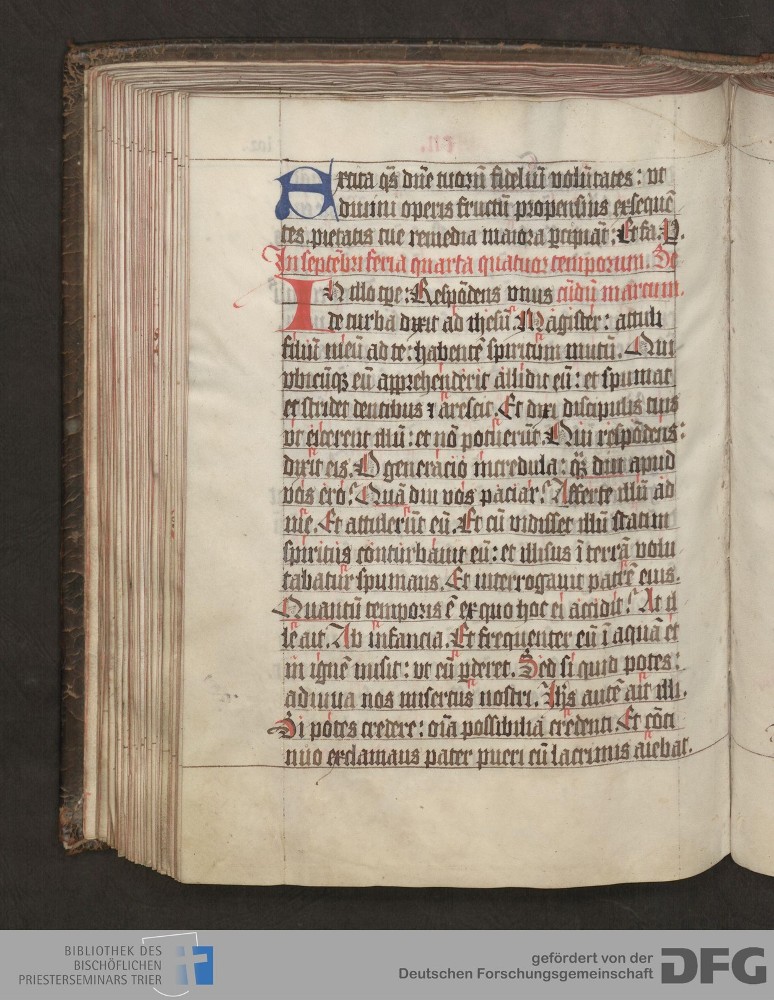 Excita qs dne tuorū fideliū volūtates: vt
diuini operis fructū propensius exsequē
tes. pietatis tue remedia maiora pcipiāt: Et fa. P.
In septēbri feria quarta quatuor temporum. Se
IN illo tpe: Respōdens vnus cūdū marcum.
de turba dixit ad ihesū. Magister: attuli
filiū meū ad te: habentē spiritum mutū. Qui
vbicūqꝫ eū apprehenderit allidit eū: et spumat
et stridet dentibus ⁊ arescit. Et dixi discipulis tuis
vt eicerent illū: et nō potuerūt. Qui respōdens:
dixit eis. O generacio incredula: qdiu apud
vos ero? Quādiu vos paciar? Afferte illū ad
me. Et attulerūt eū. Et cū vidisset illū statim
spiritus conturbauit eū: et illisus ī terrā volu
tabatur spumans. Et interrogauit patrē eius.
Quantū temporis ē ex quo hoc ei accidit? At il
le ait. Ab infancia. Et frequenter eū ī aquā et
in ignē misit: vt eū pderet. Sed si quid potes:
adiuua nos misertus nostri. Ihs autē ait illi.
Si potes credere: oīa possibilia credenti. Et cōti
nuo exclamans pater pueri cū lacrimis aiebat.
BIBLIOTHEK DES
BISCHÖFLICHEN
PRIESTERSEMINARS TRIER
gefördert von der
Deutschen Forschungsgemeinschaft DFG